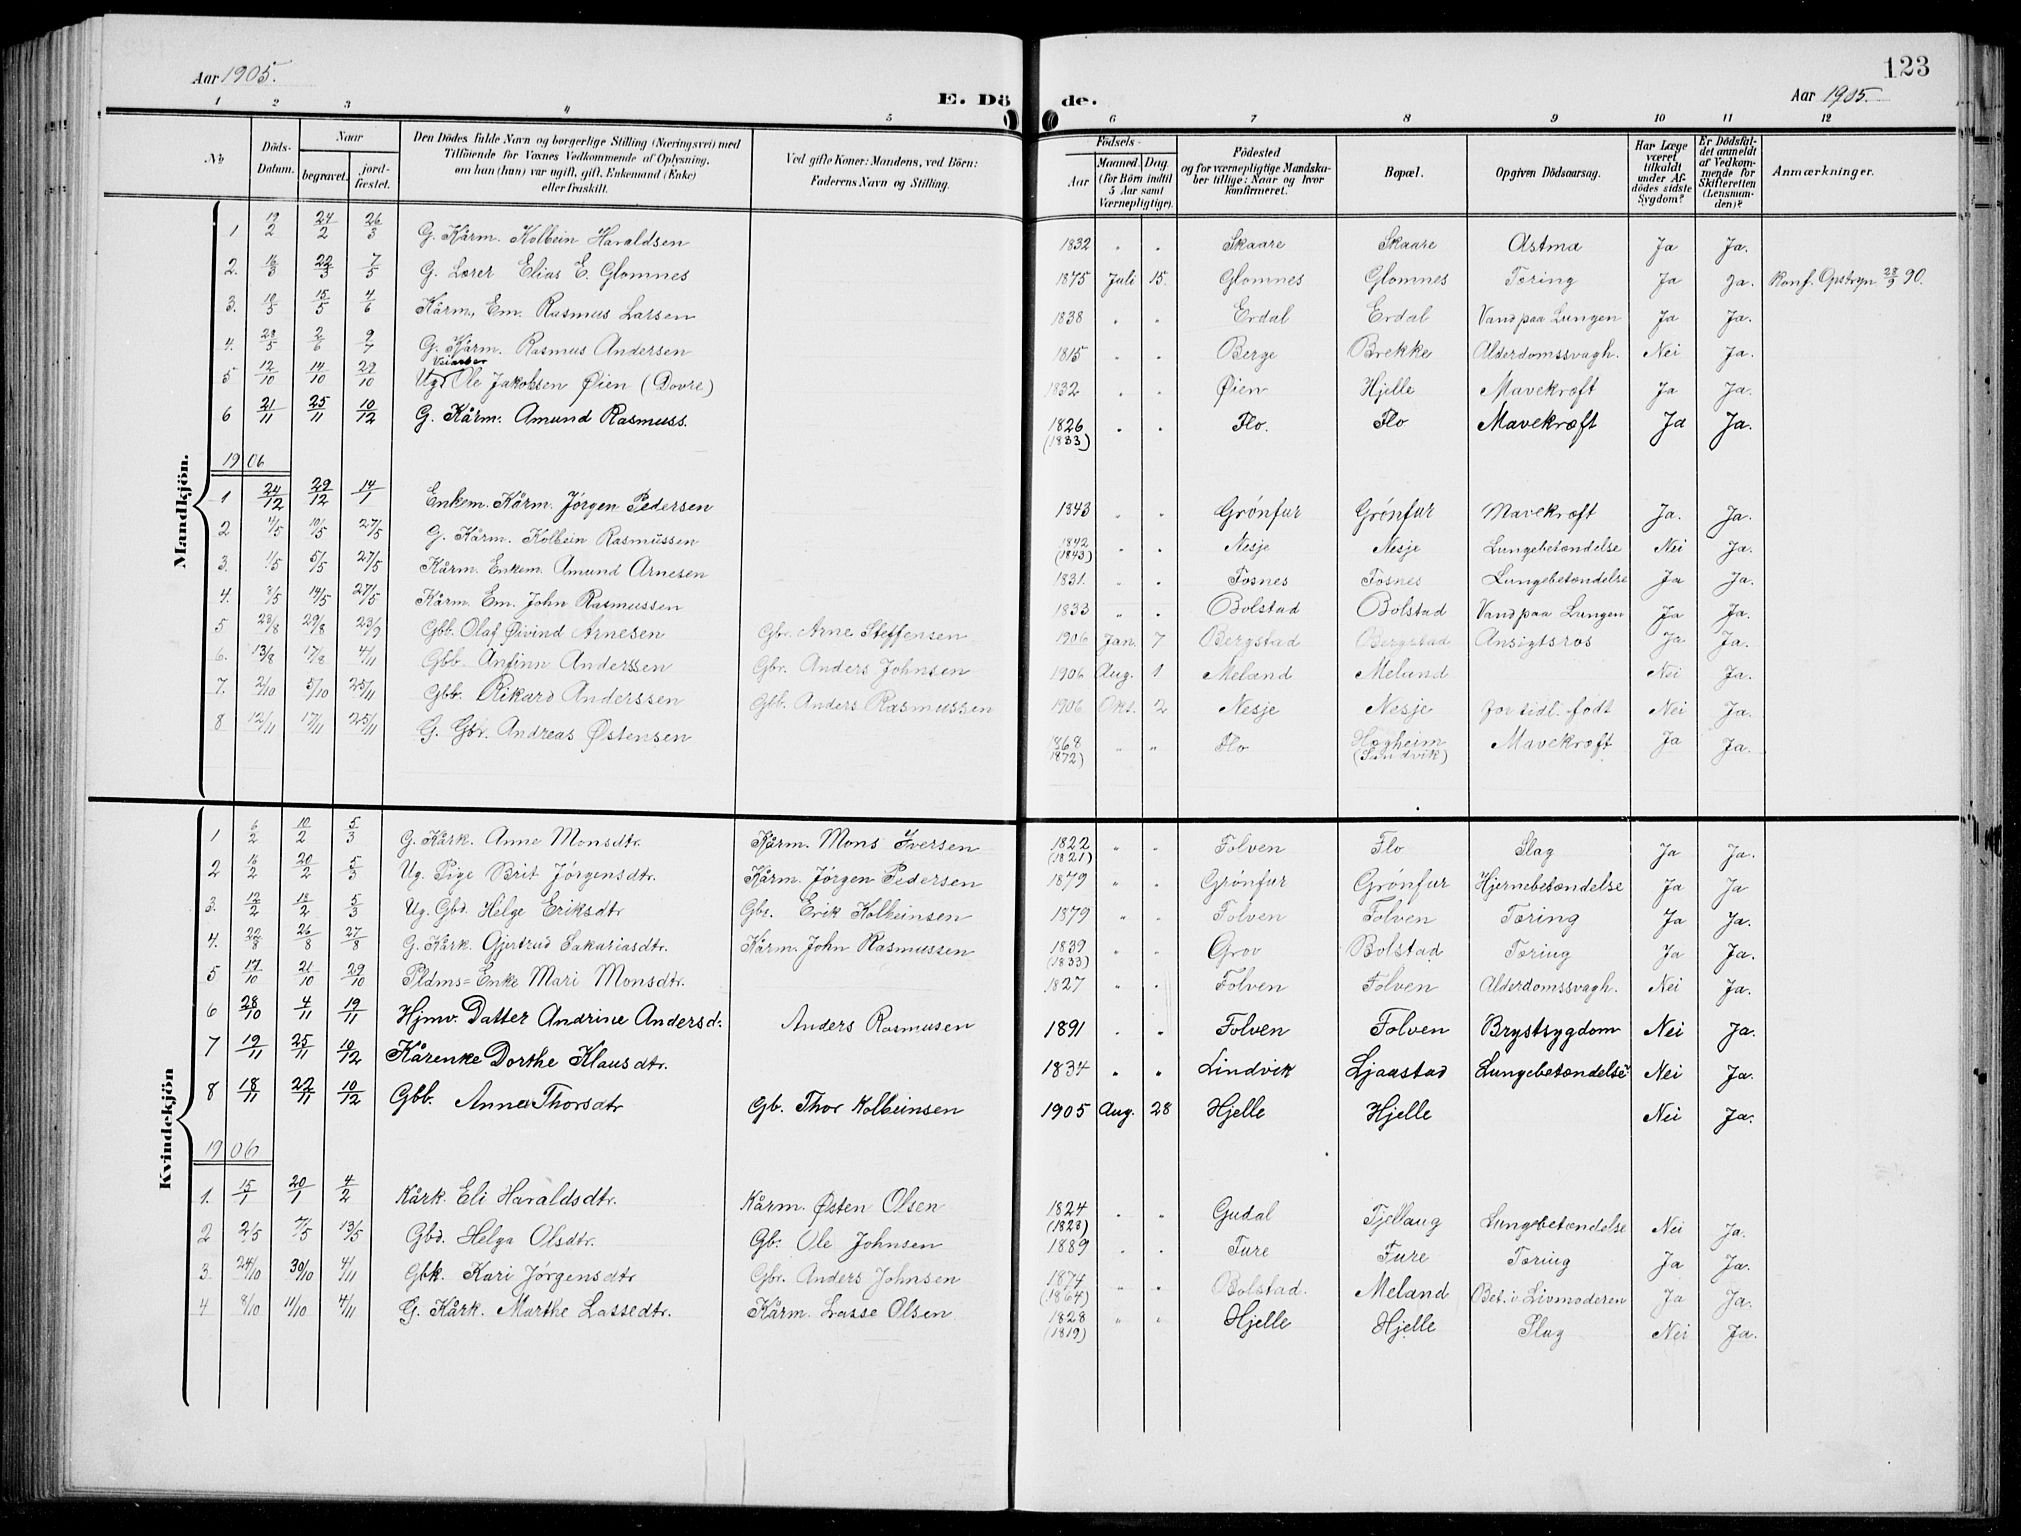 Aar 1905.
123
E. Döde.
Aar 1905.
1 2 3 4 5 6 7 8 9 10 11 12
No
Döds-Datum.
Naar
begravet.
jord-fæstet.
Den Dödes fulde Navn og borgerlige Stilling (Næringsvei) med Tilföiende for Voxnes Vedkommende af Oplysning, om han (hun) var ugift, gift, Enkemand (Enke) eller fraskilt.
Ved gifte Koner: Mandens, ved Börn: Faderens Navn og Stilling.
Födsels-
Aar
Maaned. Dag.
(for Börn indtil 5 Aar samt Værnepligtige).
Födested og for værnepligtige Mandskaber tillige: Naar og hvor konfirmeret.
Bopæl.
Opgiven Dödsaarsag.
Har Læge været tilkaldt under Afdödes sidste Sygdom?
Er Dödsfaldet anmeldt af Vedkommende for Skifteretten (Lensmanden)?
Anmærkninger.
Mandkjön.
1 19/2 24/2 26/3 G. Kårm. Kolbein Haraldsen 1832 " " Skaare Skaare Astma Ja Ja.
2. 16/3 22/3 7/5 G. Lærer Elias E. Glomnes 1875 Juli 15. Glomnes Glomnes Tæring Ja Ja. Konf. Opstryn 28/9 90.
3. 10/5 15/5 4/6 Kårm, Em. Rasmus Larsen 1838 " " Erdal Erdal Vand paa Lungen Ja Ja.
4. 28/5 2/6 9/7 G. Kårm. Rasmus Andersen 1815 " " Berge Brekke Alderdomssvagh. Nei Ja.
5 12/10 14/10 29/10 Ug. Veiarbr Ole Jakobsen Øien (Dovre) 1832 " " Øien Hjelle Mavekræft Ja Ja.
6 21/11 25/11 10/12 G. Kårm. Amund Rasmuss. 1826 (1833) " " Flo. Flo Mavekræft Ja Ja.
1906
1 24/12 29/12 14/1 Enkem. Kårm. Jørgen Pedersen 1843 " " Grønfur Grønfur Mavekræft Ja. Ja.
2 4/5 10/5 27/5 G. Kårm. Kolbein Rasmussen 1842 (1843) " " Nesje Nesje Lungebetændelse Nei Ja.
3. 1/5 5/5 27/5 Kårm. Enkem. Amund Arnesen 1831. " " Fosnes Fosnes Lungebetændelse Ja Ja.
4. 8/5 14/5 27/5 Kårm. Em. John Rasmussen 1833 " " Bolstad Bolstad Vand paa Lungen Ja Ja.
5 23/8 29/8 23/9 Gbb. Olaf Øivind Arnesen Gbr. Arne Steffensen 1906 Jan. 7 Bergstad Bergstad Ansigtsros Ja Ja.
6. 13/8 17/8 4/11 Gbb. Anfinn Anderssen Gbr. Anders Johnsen 1906 Aug. 1 Meland Meland Nei Ja.
7. 2/10 5/10 25/11 Gbb. Rikard Anderssen Gbb. Anders Rasmussen 1906 Okt. 2 Nesje Nesje for tidl. født Nei Ja.
8 12/11 17/11 25/11 G. Gbr. Andreas Østensen 1868 1872) " " Flo Hægheim (Sandvik) Mavekræft Ja Ja.
Kvindekjön
1 6/2 10/2 5/3 G. Kårk. Anne Monsdtr. Kårm. Mons Iversen 1822 (1821) " " Folven Flo Slag Ja Ja.
2 16/2 20/2 5/3 Ug. Pige Brit Jørgensdtr. Kårm. Jørgen Pedersen 1879 " " Grønfur Grønfur Hjernebetændelse Ja Ja
3. 12/2 18/2 5/3 Ug. Gbd. Helge Eriksdtr Gbr. Erik Kolbeinsen 1879 " " Folven Folven Tæring Ja Ja.
4. 22/8 26/8 27/8 G. Kårk. Gjertrud Sakariasdtr. Kårm. John Rasmussen 1839 (1833) " " Grov Bolstad Tæring Ja Ja.
5 17/10 21/10 29/10 Pldms= Enke Mari Monsdtr. 1827 " " Folven Folven Alderdomssvagh. Nei Ja.
6 28/10 4/11 19/11 Hjmv. Datter Andrine Andersd. Anders Rasmusen 1891 " " Folven Folven Brystsygdom Nei Ja.
7 19/11 25/11 10/12 Kårenke Dorthe Klausdtr. 1834 " " Lindvik Ljaastad Lungebetændelse Nei Ja.
8 18/11 22/11 10/12 Gbb. Anna Thorsdtr Gb. Thor Kolbeinsen 1905 Aug. 28 Hjelle Hjelle Nei Ja.
1906
1. 15/1 20/1 4/2 Kårk. Eli Haraldsdtr. Kårm. Østen Olsen 1824 (1828) " " Gudal Tjellaug Lungebetændelse Nei Ja.
2 2/5 7/5 13/5 Gbd. Helga Olsdtr. Gb. Ole Johnsen 1889 " " Fure Fure Tæring Ja Ja.
3 24/10 30/10 4/11 Gbk. Kari Jørgensdtr Gbr. Anders Johnsen 1874 (1864) " " Bolstad. Meland Bet. i Livmoderen Ja Ja.
4 8/10 11/10 4/11 G. Kårk. Marthe Lassedtr. Kårm. Lasse Olsen 1828 (1819) " " Hjelle Hjelle Slag Nei Ja.